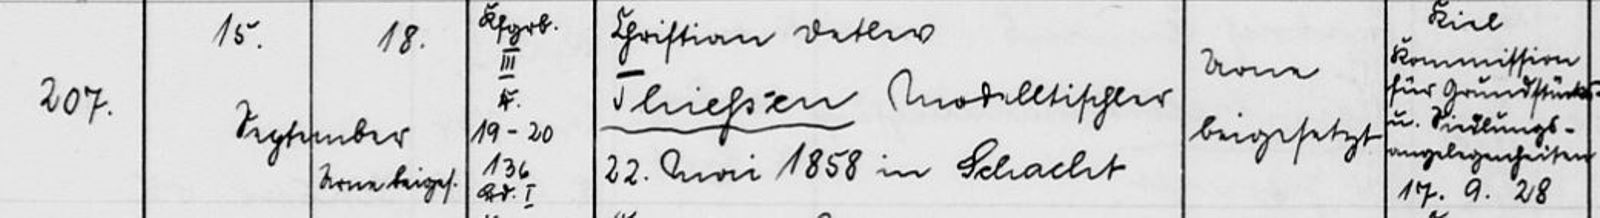 207.
15.
18.
September
Urne beiges.
Kfgrb.
III
19-20
136
I
Christian Detlev
Thießen Modelltischler
22. Mai 1858 in Schacht
Urne
beigesetzt
Kiel
Kommission
für Grundstücks-
u. Siedlungs-
angelegenheiten
17. 9. 28